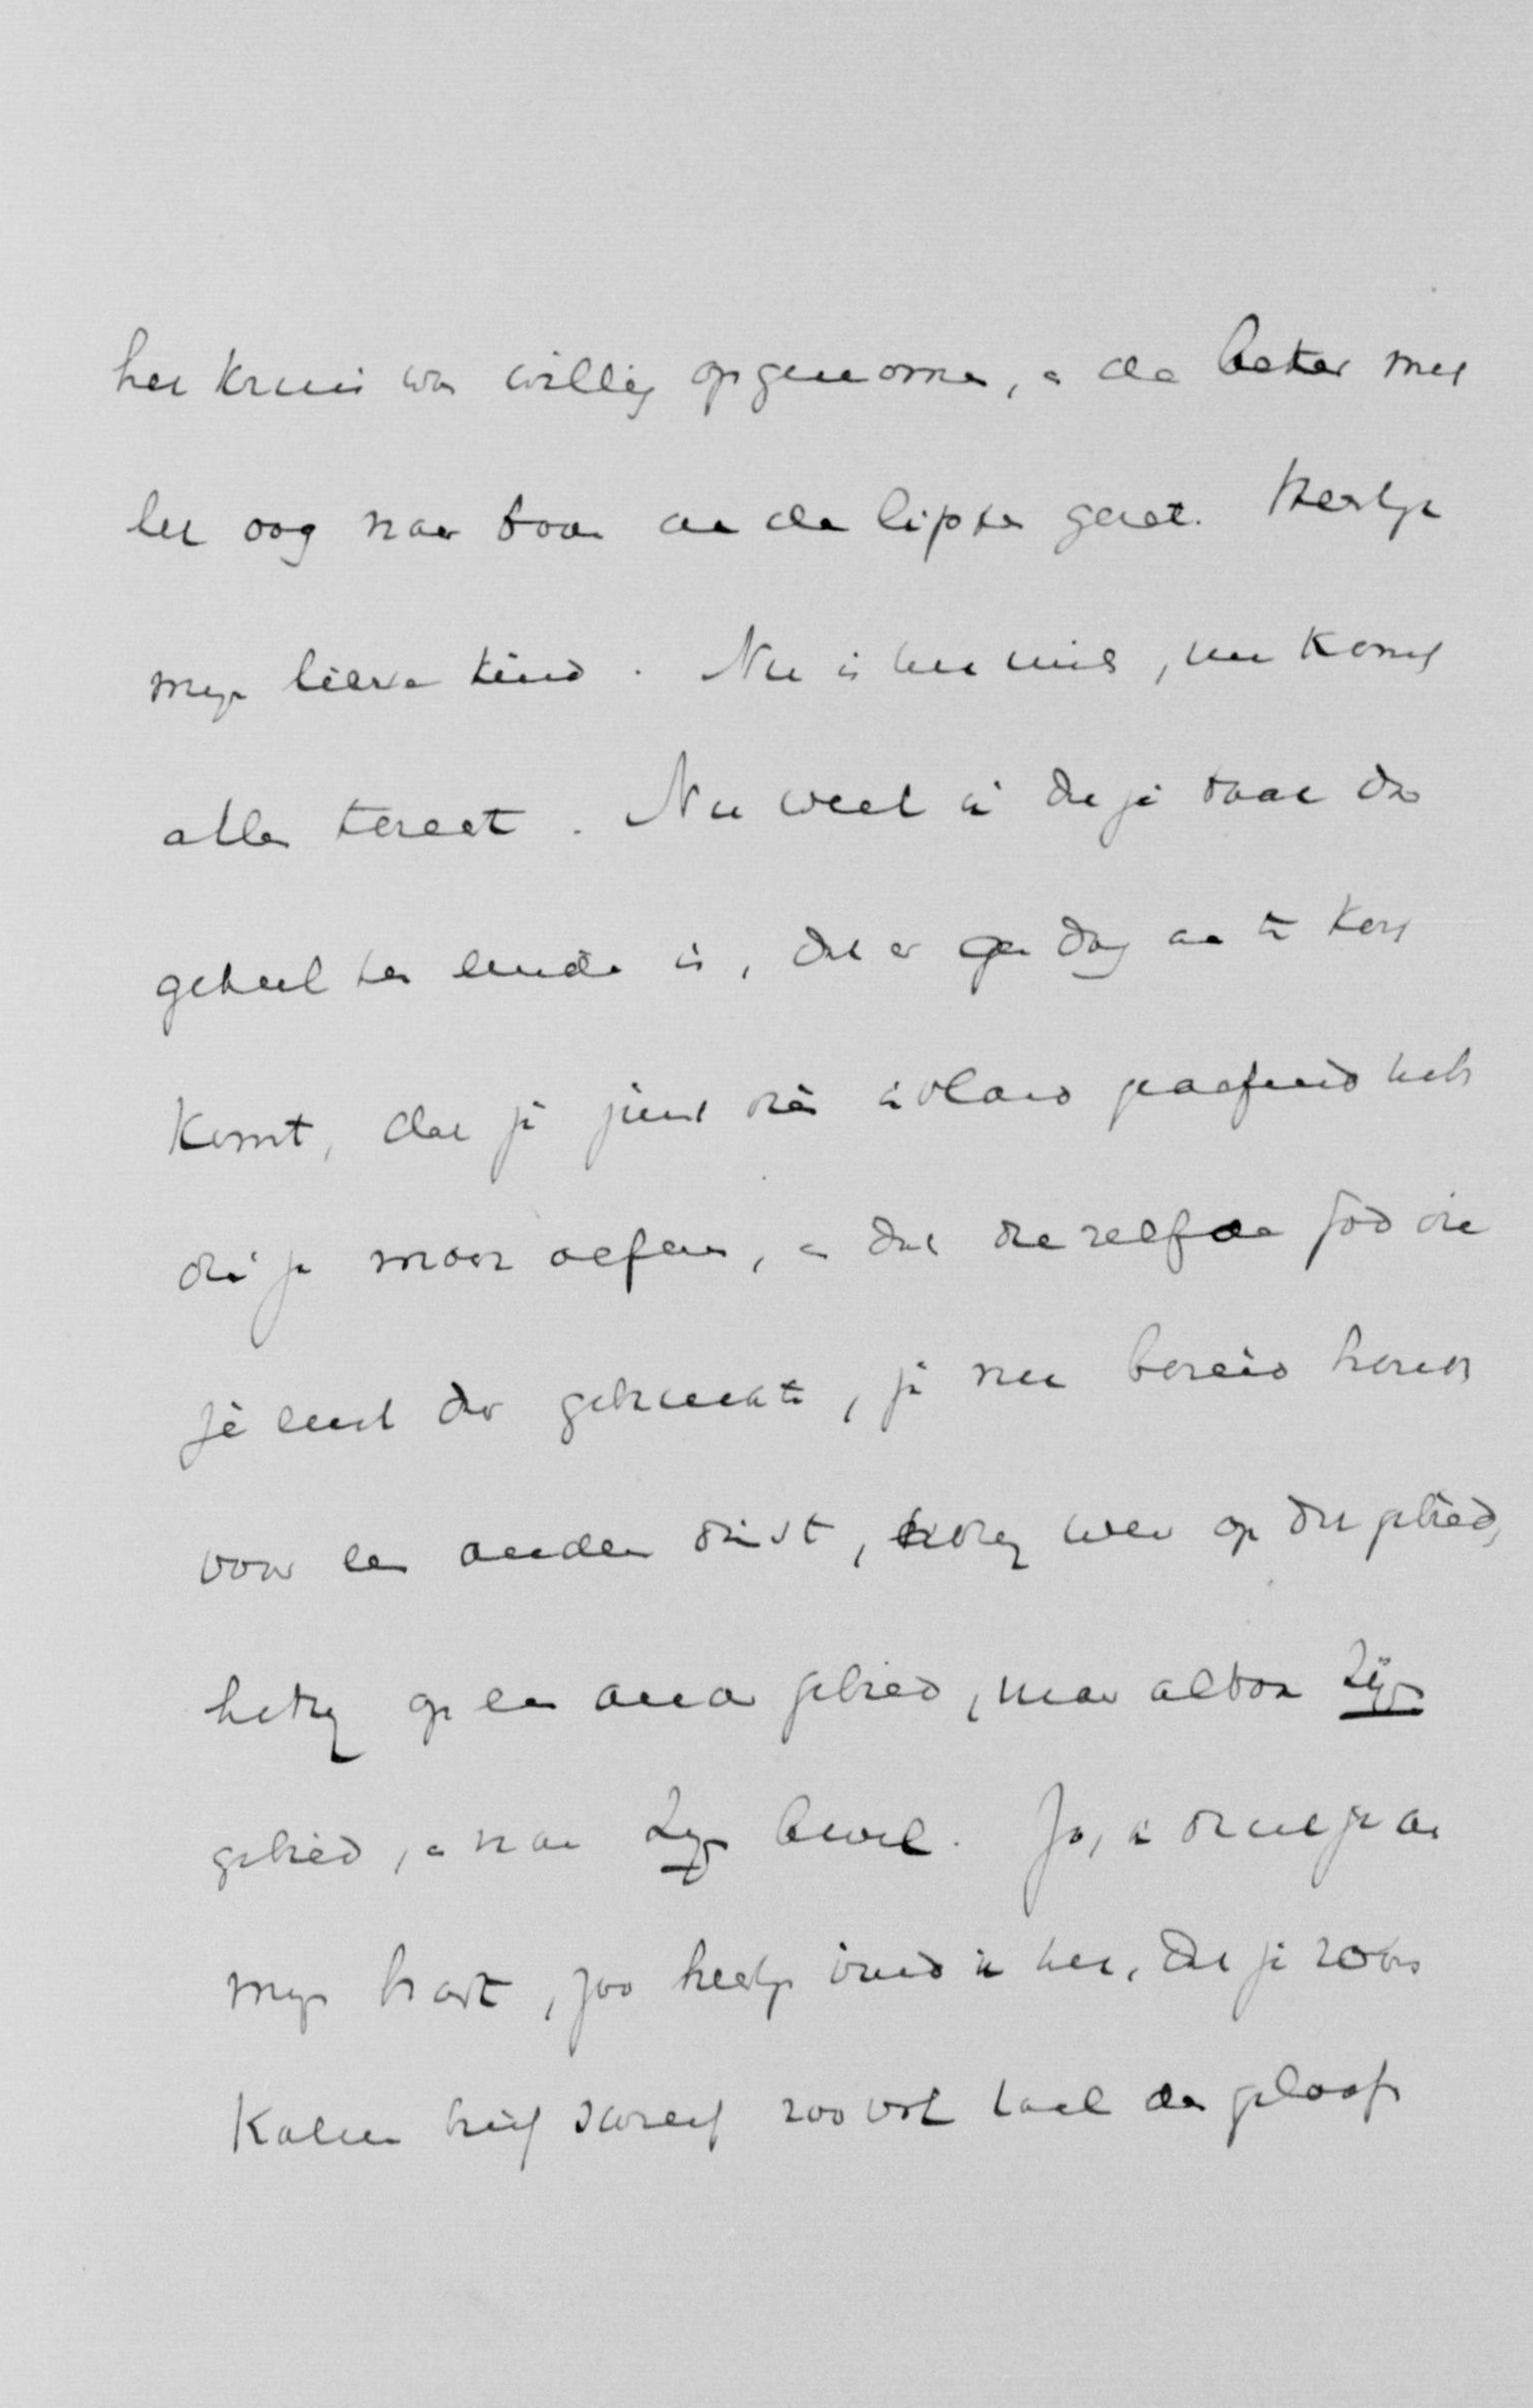 het kruis was willig opgenomen, en de beker met
het oog naar boven aan de lippen gezet. Heerlijk
mijn lieve kind. Nu is het mis, nu komt
alles terecht. Nu weet ik dat je taak daar
geheel ten einde is, dat er geen dag aan te kort
komt, dat je juist die invloed geoefend hebt
die je moest oefenen, en dat dezelfde God die
je eerst daar gebruikte, je nu bereid houdt
voor een anderen dienst, hetzij weer op dit gebied,
hetzij op een ander gebied, maar altoos Zijn
gebied, en naar Zijn bevel. Ja, ik druk je aan
mijn hart, zoo heerlijk vind ik het, dat je zoo'n
kalmen brief schreeft zoo vol taal des geloofs